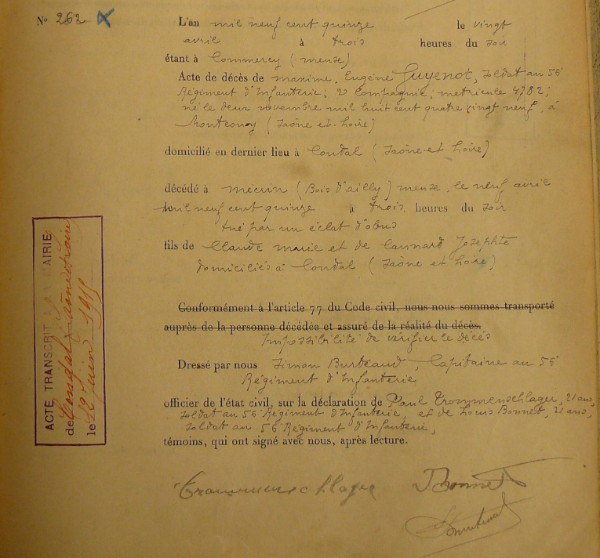 N° 262 x
L'an mil neuf cent quinze le vingt
avril à trois heures du soir
étant à Commercy (meuse)
Acte de décès de maxime, Eugène Guyenot, soldat au 56
Régiment d'Infanterie; 2 Compagnie; matricule 4782;
né le deux novembre mil huit cent quatre vingt neuf, à
(Saône et Loire)
domicilié en dernier lieu à Condal (Saône et Loire)
décédé à mécrin (Bois d'ailly) meuse, le neuf avril
mil neuf cent quinze à trois heures du soir
tué par un éclat d'obus
fils de Claude marie et de Cannard Josephte
domiciliés à Condal (Saône et Loire)
Conformément à l'article 77 du Code civil, nous nous sommes transporté
auprès de la personne décédée et assuré de la réalité du décès.
Impossibilité de vérifier le décès
Dressé par nous Simon Burteaud, Capitaine au 56
Régiment d'Infanterie
officier de l'état civil, sur la déclaration de Paul Trommenschlager, 21 ans,
soldat au 56 Régiment d'Infanterie, et de Louis Bonnet, 21 ans,
soldat au 56 Régiment d'Infanterie,
témoins, qui ont signé avec nous, après lecture.
Trommenschlager LBonnet
ACTE TRANSCRIT A LA MAIRIE
de Condal
le 1915